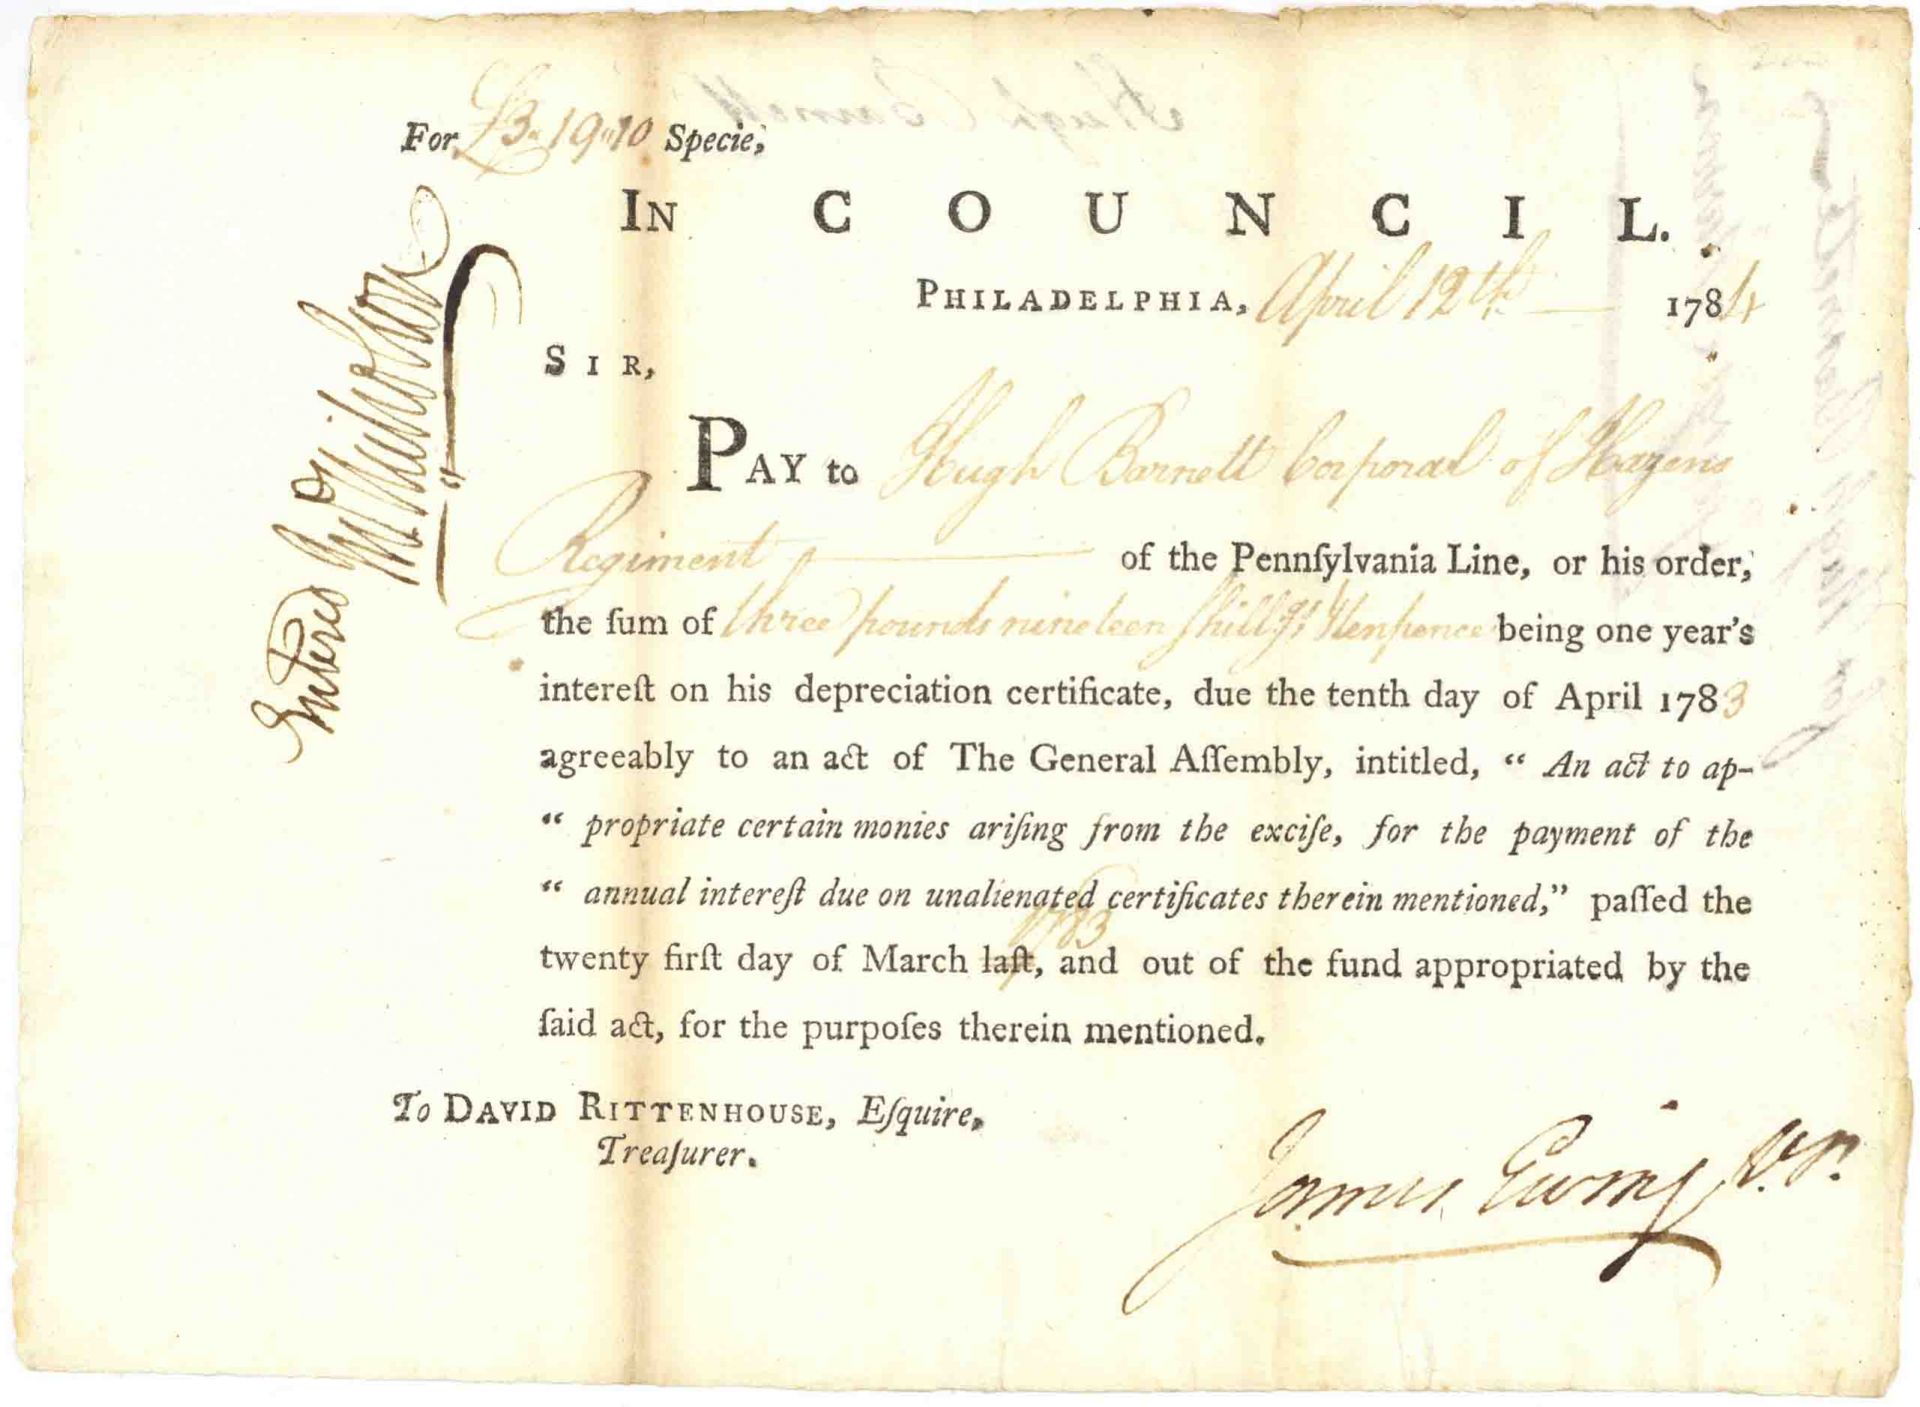 For £3"19"10 Specie,
IN COUNCIL.
PHILADELPHIA, April 12th 1784
SIR,
PAY to Hugh Barnett Corporal of Hazens
Regiment of the Pennſylvania Line, or his order,
the ſum of three pounds nineteen ſhillgs & tenpence being one year's
intereſt on his depreciation certificate, due the tenth day of April 1783
agreeably to an act of The General Aſſembly, intitled, “ An act to ap-
“ propriate certain monies ariſing from the exciſe, for the payment of the
“ annual intereſt due on unalienated certificates therein mentioned,” paſſed the
1783
twenty firſt day of March laſt, and out of the fund appropriated by the
ſaid act, for the purpoſes therein mentioned.
To DAVID RITTENHOUSE, Eſquire,
Treaſurer.
James Ewing V.P.
Entered Jno Nicholson
Hugh Barnett